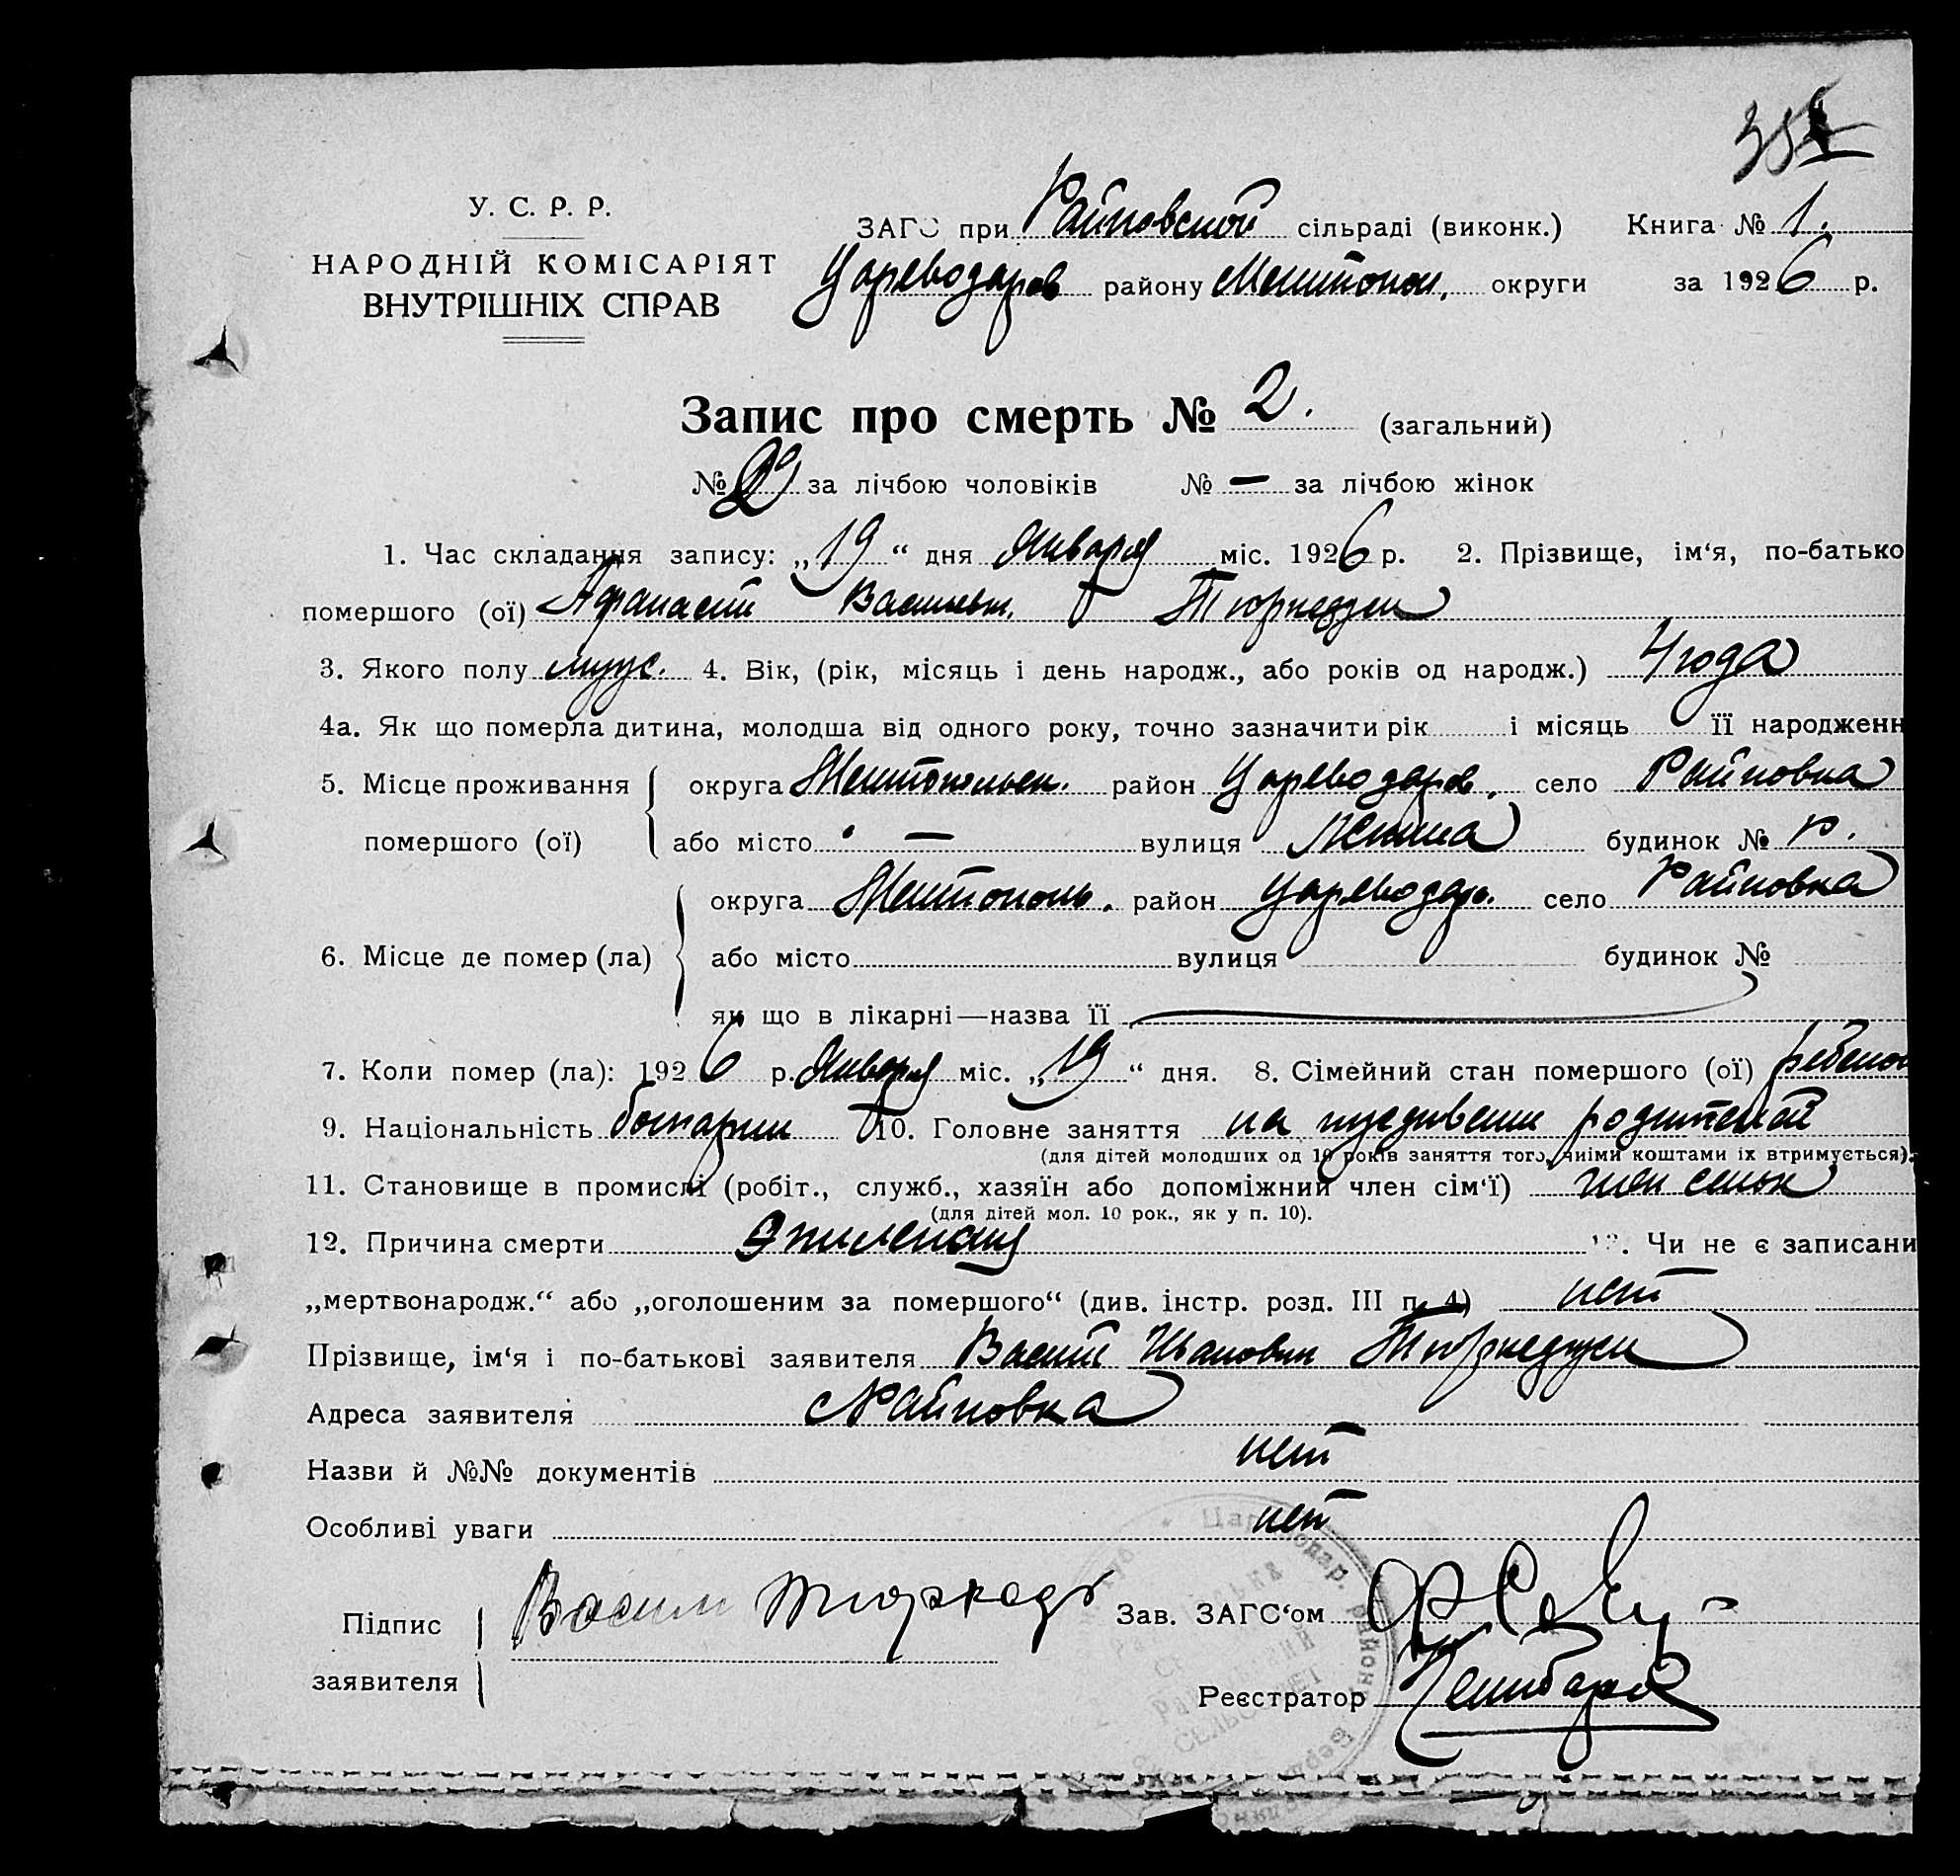 У. С. Р. Р.
НАРОДНІЙ КОМІСАРІЯТ
ВНУТРІШНІХ СПРАВ
ЗАГС при Райновской сільраді (виконк.) Книга № 1.
Цареводаров району Мелитопол. округи за 1926 р.
Запис про смерть № 2. (загальний)
№ 2 за лічбою чоловіків № — за лічбою жінок
1. Час складання запису: „19“ дня Января міс. 1926 р. 2. Прізвище, ім'я, по-батько
помершого (ої) Афанасий Васильев. Тюркеджи
3. Якого полу муж. 4. Вік, (рік, місяць і день народж., або років од народж.) 4 года
4а. Як що померла дитина, молодша від одного року, точно зазначити рік і місяць її народженн
5. Місце проживання помершого (ої) округа Мелитопольск. район Цареводаров. село Райновка
або місто — вулиця Ленина будинок №
6. Місце де помер (ла) округа Мелитополь. район Цареводар. село Райновка
або місто вулиця будинок №
як що в лікарні—назва її
7. Коли помер (ла): 1926 р. Января міс. „19“ дня. 8. Сімейний стан помершого (ої) ребенок
9. Національність болгарин 10. Головне заняття на иждивении родителей
(для дітей молодших од 10 років заняття того, чиїми коштами їх втримується).
11. Становище в промислі (робіт., служб., хазяїн або допоміжний член сім'ї) член семьи
(для дітей мол. 10 рок., як у п. 10).
12. Причина смерти Эпилепсия 13. Чи не є записани
„мертвонародж.“ або „оголошеним за помершого“ (див. інстр. розд. III п. 4) нет
Прізвище, ім'я і по-батькові заявителя Васил Иванович Тюркеджи
Адреса заявителя с Райновка
Назви й №№ документів нет
Особливі уваги нет
Підпис заявителя Васил Тюркедж
Зав. ЗАГС'ом
Реєстратор